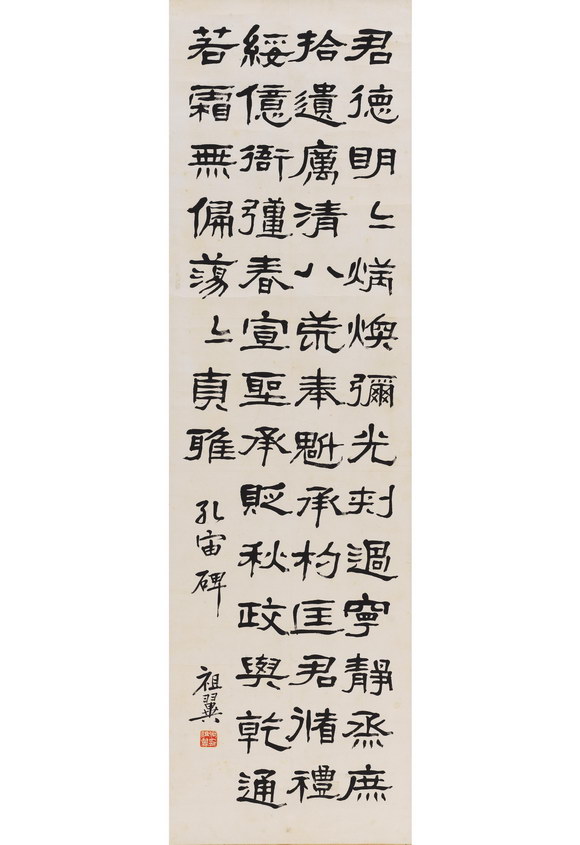 君德明〻炳煥彌光刺過寧靜烝庶
拾遺厲清八荒奉魁承杓匡君脩禮
綏億衙彊春宣聖承貶秋政與乾通
若霜無偏蕩〻貞雅
孔宙碑 祖翼